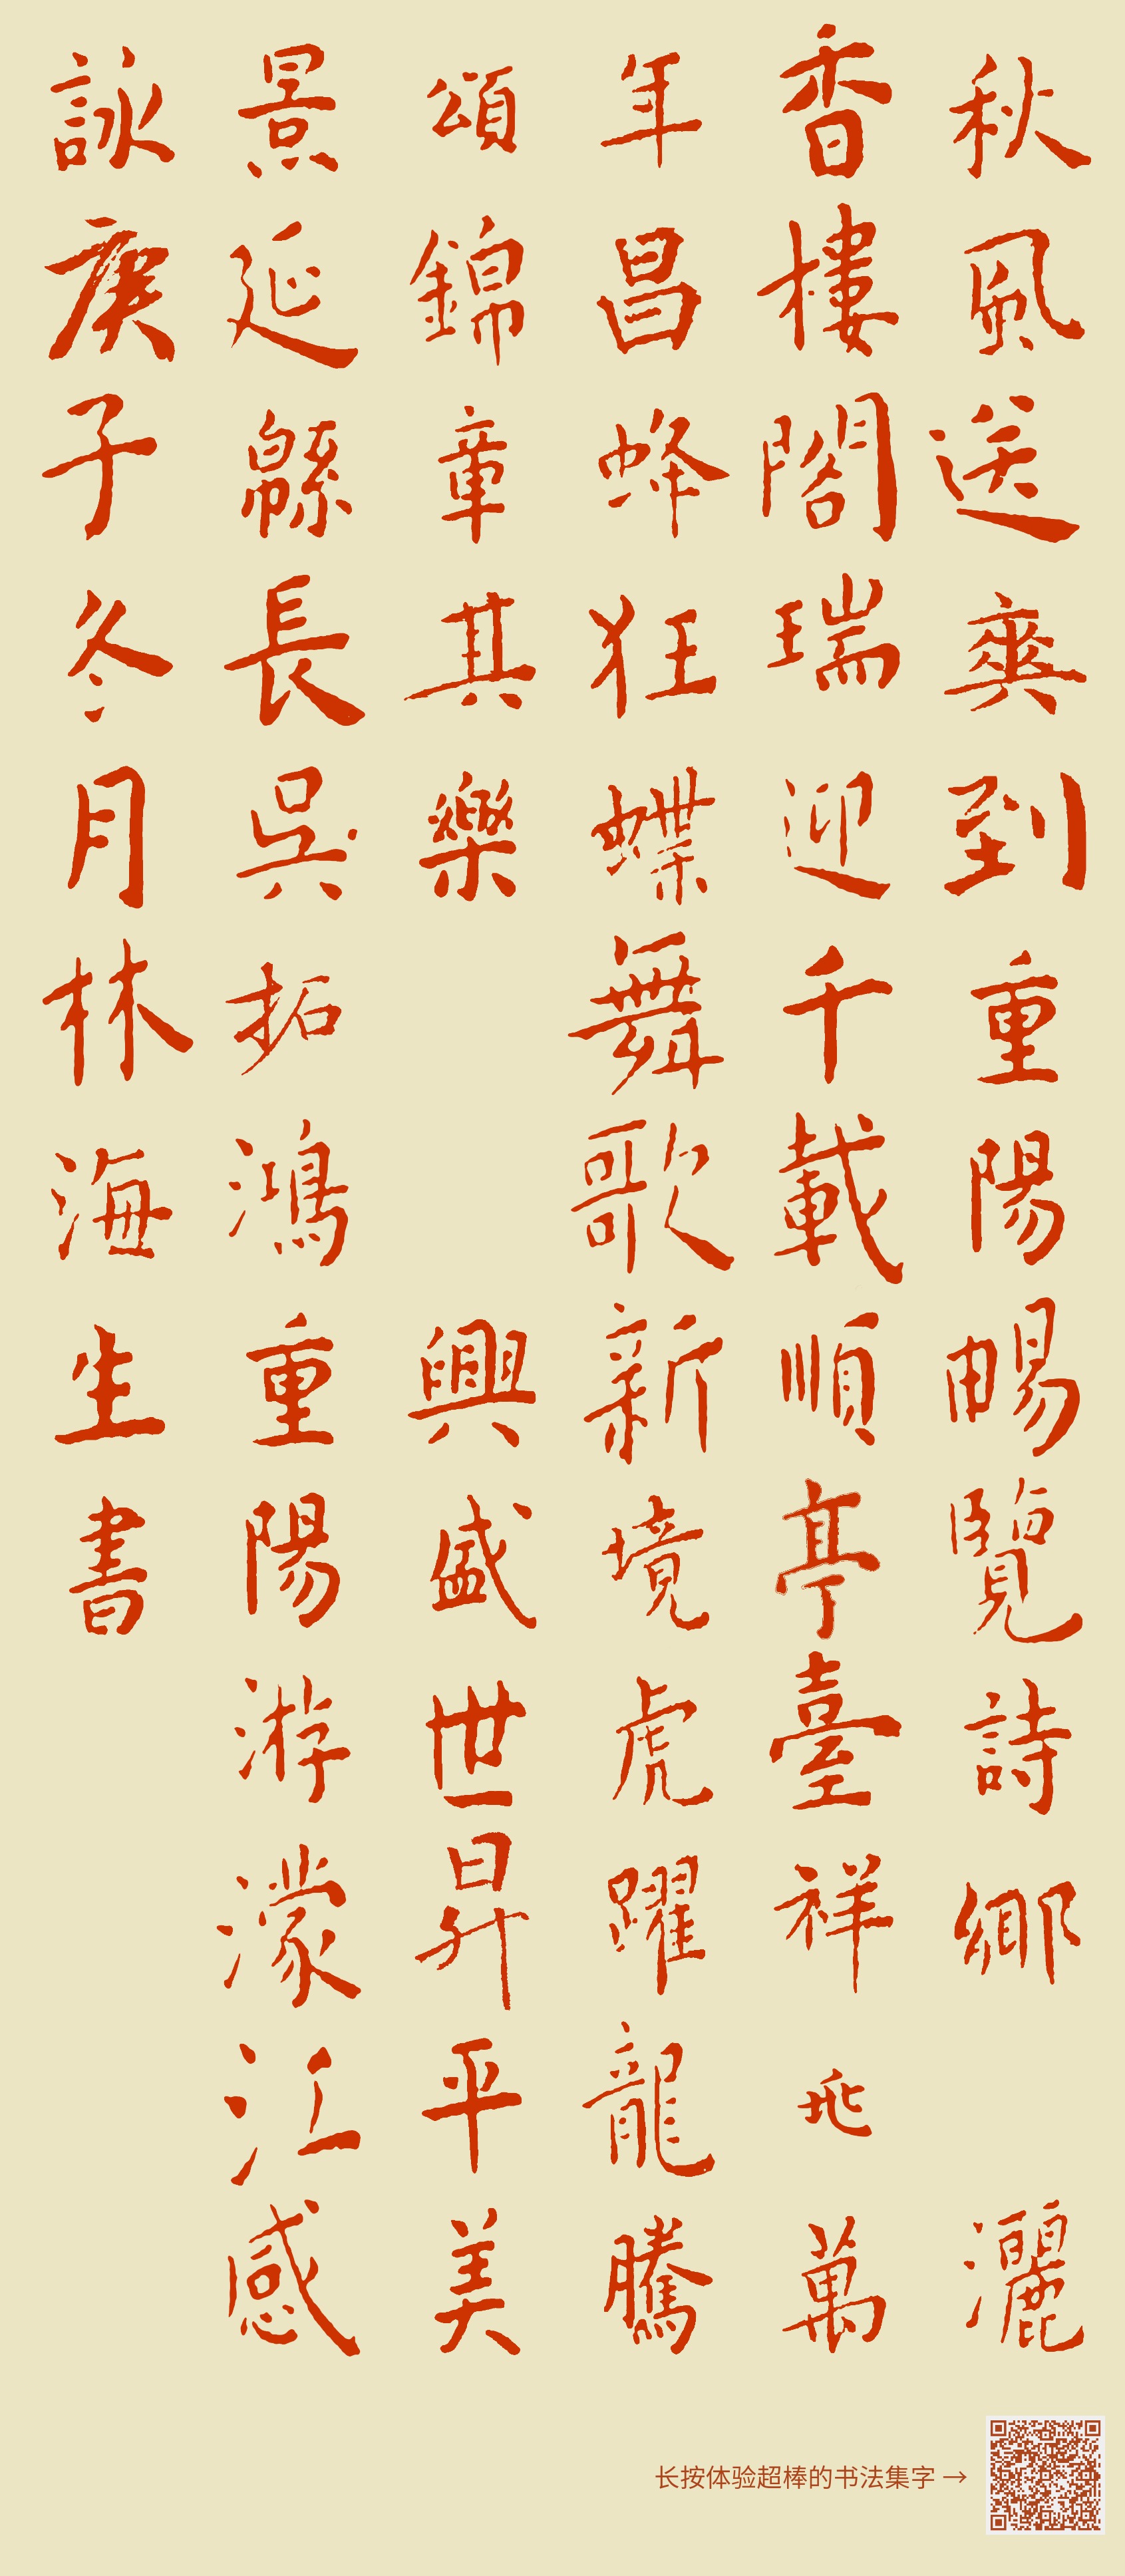 秋風送爽到重陽暢覽詩鄉 灑
香樓閣瑞迎千載順亭臺祥兆萬
年昌蜂狂蝶舞歌新境虎躍龍騰
頌錦章其樂 興盛世昇平美
景延緜長吳拓鴻重陽游濛江感
詠庚子冬月林海生書
长按体验超棒的书法集字 →